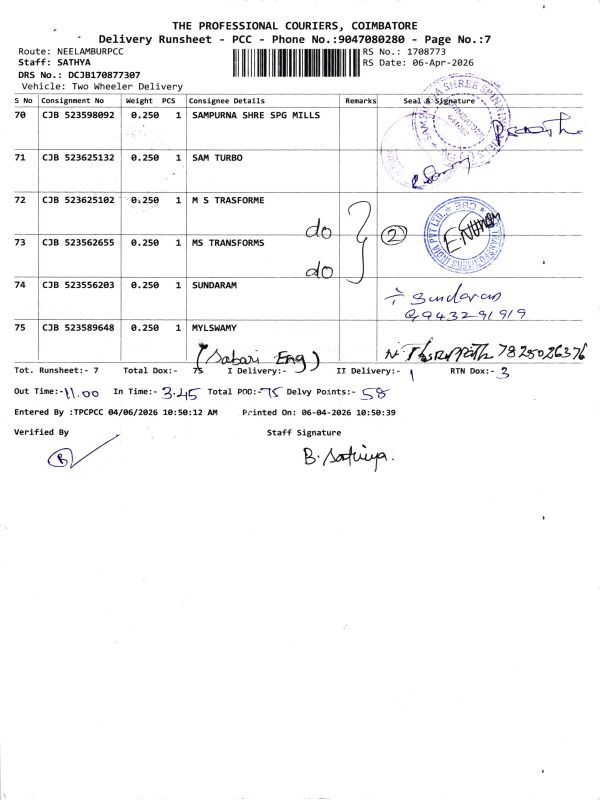 THE PROFESSIONAL COURIERS, COIMBATORE
Delivery Runsheet - PCC - Phone No.:9047080280 - Page No.:7
Route: NEELAMBURPCC RS No.: 1708773
Staff: SATHYA RS Date: 06-Apr-2026
DRS No.: DCJB170877307
Vehicle: Two Wheeler Delivery
S No Consignment No Weight PCS Consignee Details Remarks Seal & Signature
70 CJB 523598092 0.250 1 SAMPURNA SHRE SPG MILLS
71 CJB 523625132 0.250 1 SAM TURBO
72 CJB 523625102 0.250 1 M S TRASFORME do
73 CJB 523562655 0.250 1 MS TRANSFORMS do 2
74 CJB 523556203 0.250 1 SUNDARAM Sundaram
9943291919
75 CJB 523589648 0.250 1 MYLSWAMY
(Sabari Eng) 7825026376
Tot. Runsheet:- 7 Total Dox:- 75 I Delivery:- II Delivery:- 1 RTN Dox:- 3
Out Time:-11.00 In Time:- 3.45 Total POD:-75 Delvy Points:- 58
Entered By :TPCPCC 04/06/2026 10:50:12 AM Printed On: 06-04-2026 10:50:39
Verified By Staff Signature
B. Sathiya.